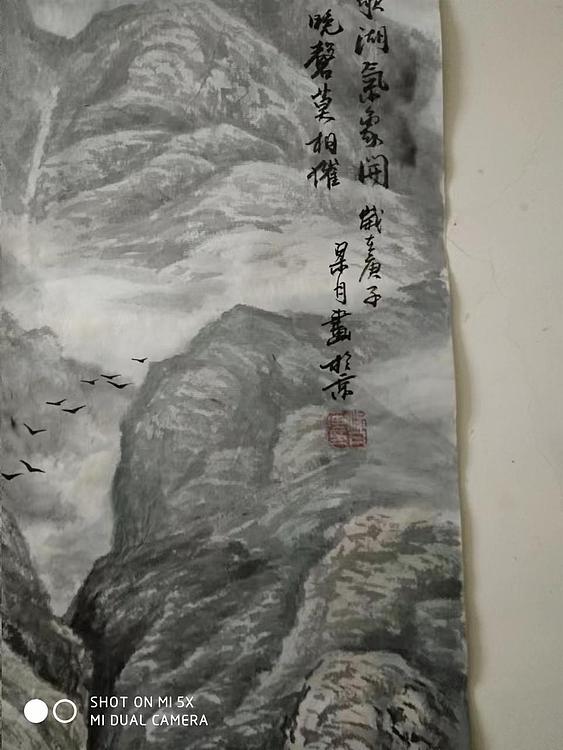 湖氣象開 歲在庚子
晚磬莫相催
杲月畫於京
SHOT ON MI 5X
MI DUAL CAMERA